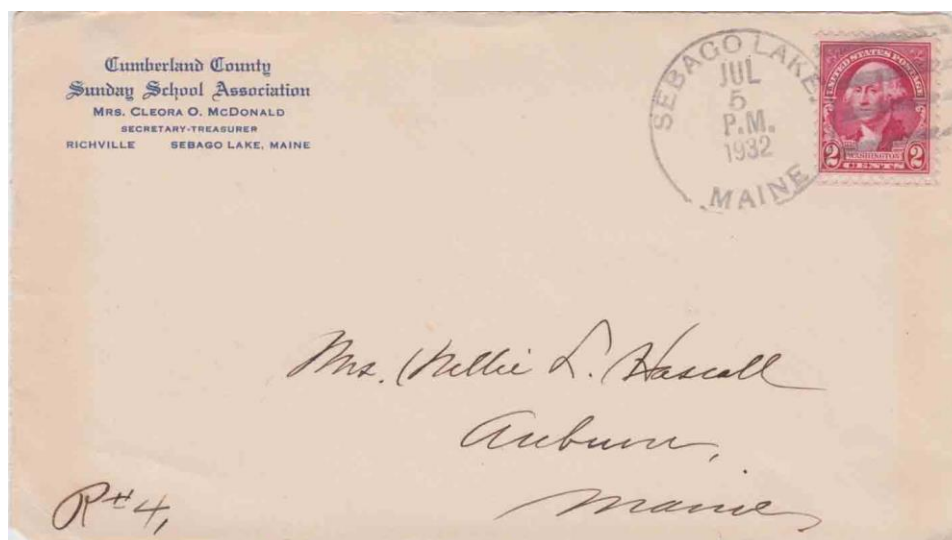 Cumberland County
Sunday School Association
MRS. CLEORA O. MCDONALD
SECRETARY-TREASURER
RICHVILLE SEBAGO LAKE, MAINE
SEBAGO LAKE,
JUL
5
P.M.
1932
MAINE
UNITED STATES POSTAGE
2 WASHINGTON 2
CENTS
Mrs. Nellie L. Hascall
Auburn,
Maine
R#4,